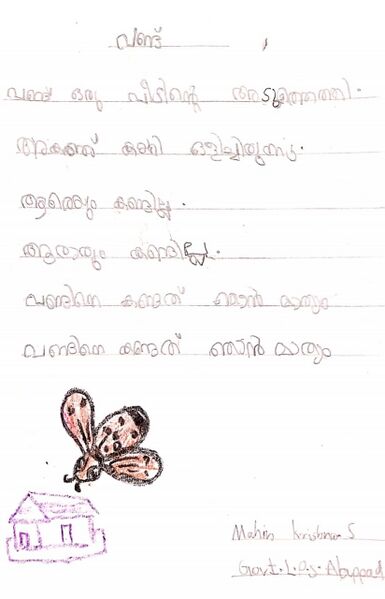 വണ്ട്
വണ്ട് ഒരു വീടിന്റെ അടുത്തെത്തി.
അകത്ത് കയറി ഒളിച്ചിരുന്നു.
ആരെയും കണ്ടില്ല.
ആരാരും കണ്ടില്ലേ.
വണ്ടിനെ കണ്ടത് ഞാൻ മാത്രം
വണ്ടിനെ കണ്ടത് ഞാൻ മാത്രം
Mahin Krishna S
Govt. L.P.S